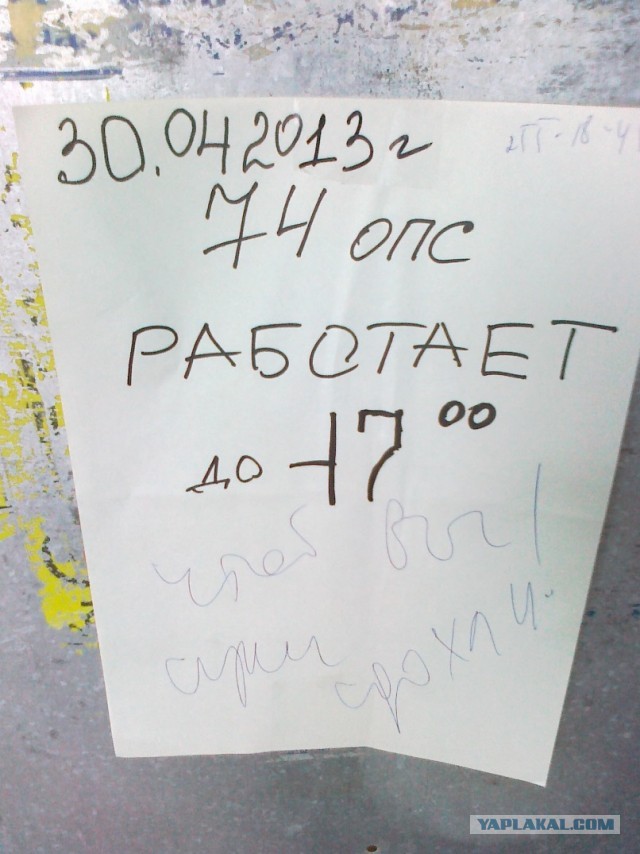 30.04 2013 г
74 ОПС
РАБОТАЕТ
ДО 17 00
чтоб вы
суки сдохли.
YAPLAKAL.COM